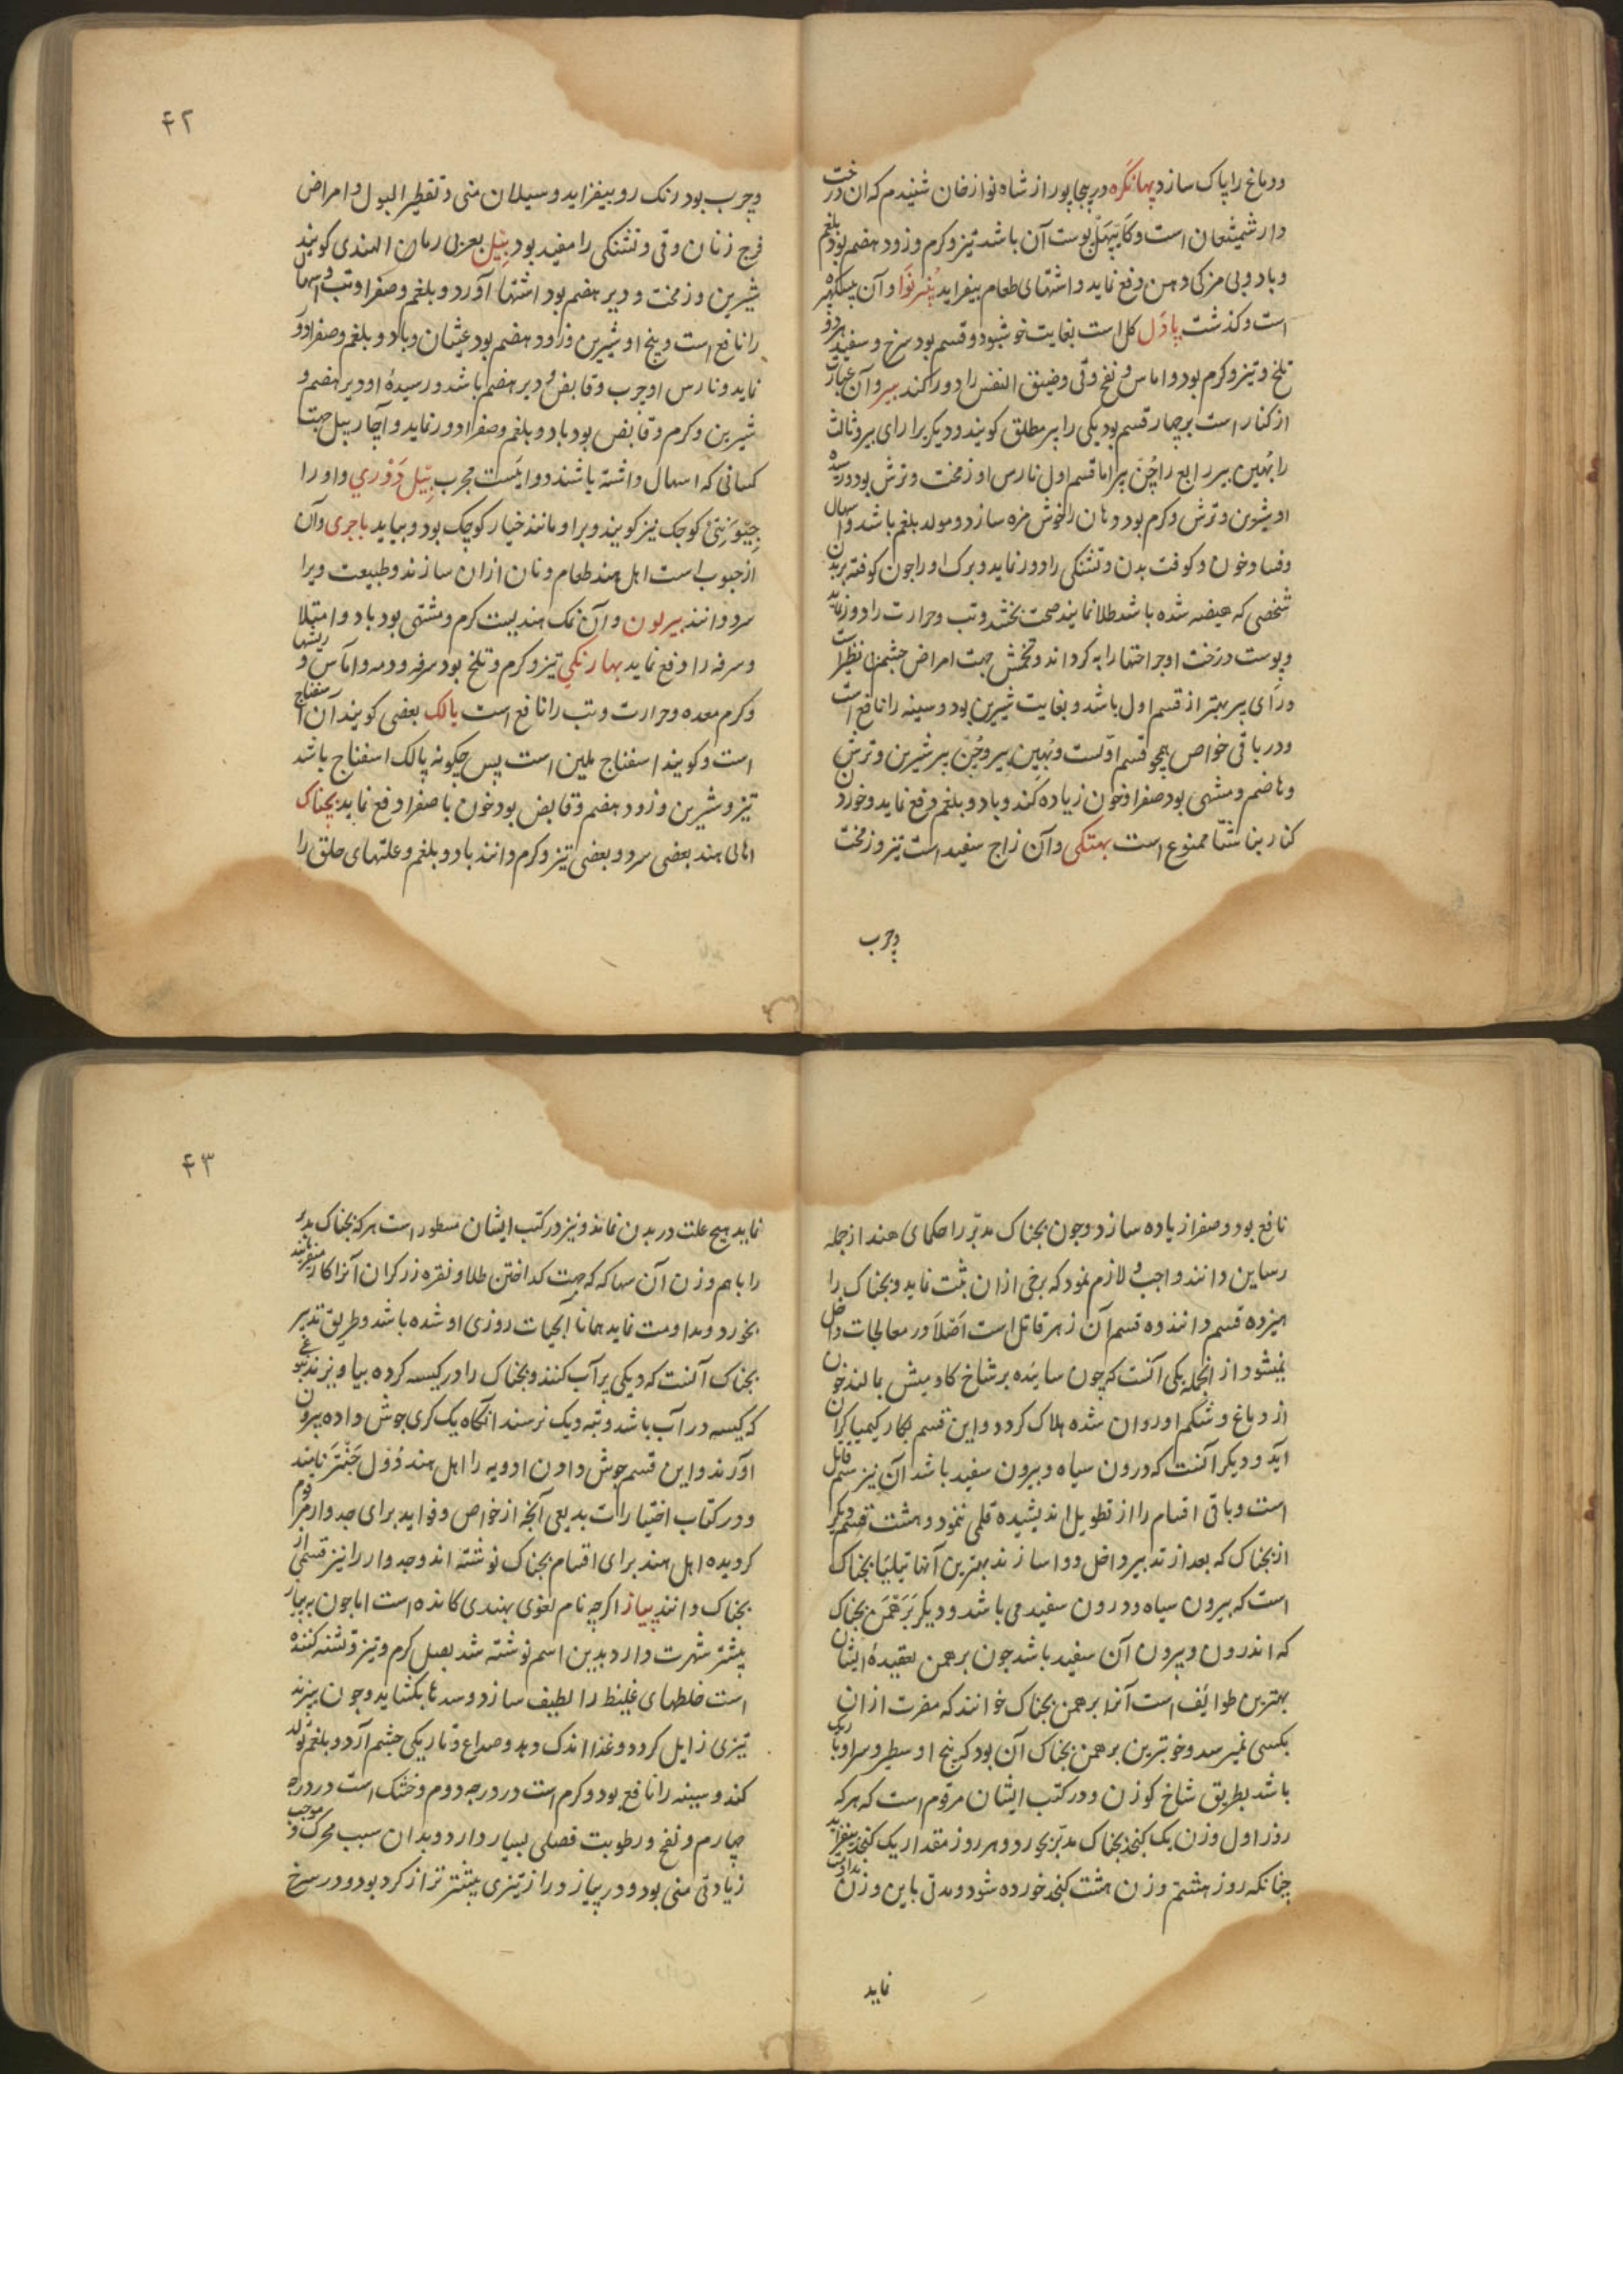 ودماغ را پاک سازد پهانگره در بیجاپور از شاه نوازخان شنیدم که آن درخت
دارشیشعان است و کایپهل پوست آن باشد تیز و کرم و زود هضم بود بلغم
وباد و بی مزکی دهن دفع نماید و اشتهای طعام بیفزاید پُنرنَوا و آن
است و کذشت پاڈل کل است بغایت خوشبو دو قسم بود سرخ و سفید هر دو
تلخ و تیز و کرم بود و اماس و نفخ و قی و ضیق النفس را دور کند بیر و آن عبارت
از کنار است بر چهار قسم بود یکی را بیر مطلق کویند و دیکر را رای بیر و ثالث
را بُهین بیر رابع را چُنّ بیر اما قسم اول نارس او زمخت و ترش بود و رسیده
او شیرین و ترش و کرم بود دهان را خوش مزه سازد و مولد بلغم باشد و اسهال
وفساد خون و کوفت بدن و تشنکی را دور نماید و برک او را چون کوفته بر بدن
شخصی که هیضه شده باشد طلا نمایند صحت بخشد و تب و حرارت را دور نماید
و پوست درخت او جراحتها را به کرداند و تخمش جهت امراض چشم بی نظیر است
و رای بیر بهتر از قسم اول باشد و بغایت شیرین بود و سینه را نافع است
و در باقی خواص همچو قسم اولست و بُهین بیر و چُنّ بیر شیرین و ترش
و هاضم و مشهی بود صفرا و خون زیاده کند و باد و بلغم دفع نماید و خوردن
کنار بناشتا ممنوع است بهتکی و آن زاج سفید است تیز و زمخت
وچرب
۴۲
وچرب بود رنک رو بیفزاید و سیلان منی و تقطیر البول و امراض
فرج زنان و قی و تشنکی را مفید بود بیل بعربی رمان الهندی کویند
شیرین و زمخت و دیر هضم بود اشتها آورد و بلغم و صفرا و تب و اسهال
را نافع است و بیخ او شیرین و زود هضم بود غثیان و باد و بلغم و صفرا دور
نماید و نارس او چرب و قابض و دیر هضم باشد و رسیدۀ او دیر هضم و
شیرین و کرم و قابض بود باد و بلغم و صفرا دور نماید و آچار بیل جهت
کسانی که اسهال داشته باشند دوائیست مجرب بیل دَوْری و او را
جِیْوَنتی کوچک نیز کویند و بر او مانند خیار کوچک بود و بیاید باجری و آن
از حبوب است اهل هند طعام و نان از آن سازند و طبیعت ویرا
سرد دانند بیرلون و آن نمک هندیست کرم و مشتهی بود باد و امتلا
وسرفه را دفع نماید بهارنکی تیز و کرم و تلخ بود سرفه و دمه و اماس و ریشها
و کرم معده و حرارت و تب را نافع است پالک بعضی کویند آن اسفناج
است و کویند اسفناج ملین است پس چکونه پالک اسفناج باشد
تیز و شیرین و زود هضم و قابض بود خون با صفرا دفع نماید بچناک
اهالی هند بعضی سرد و بعضی تیز و کرم دانند باد و بلغم و علتهای حلق را
نافع بود و صفرا زیاده سازد و چون بچناک مدبر را حکمای هند از جمله
رساین دانند واجب و لازم نمود که برخی از آن ثبت نماید و بچناک را
هیزده قسم دانند ده قسم آن زهر قاتل است اصلاً در معالجات داخل
نمیشود از انجمله یکی آنست که چون سائیده بر شاخ کاومیش بمالند خون
از دماغ و شکم او روان شده هلاک کردد و این قسم بکار کیمیاکران
آید و دیکر آنست که درون سیاه و بیرون سفید باشد آن نیز سم قاتل
است و باقی اقسام را از تطویل اندیشیده قلمی ننمود و هشت قسم دیکر
از بچناک که بعد از تدبیر داخل دوا سازند بهترین آنها تیلیا بچناک
است که بیرون سیاه و درون سفید می باشد و دیکر بَرَهْمَن بچناک
که اندرون و بیرون آن سفید باشد چون برهمن بعقیدۀ ایشان
بهترین طوایف است آنرا برهمن بچناک خوانند که مضرت از آن
بکسی نمیرسد و خوبترین برهمن بچناک آن بود که بیخ او سطبر و سر او باریک
باشد بطریق شاخ کوزن و در کتب ایشان مرقوم است که هر که
روز اول وزن یک کنجد بچناک مدبر بخورد و هر روز مقدار یک کنجد بیفزاید
چنانکه روز هشتم وزن هشت کنجد خورده شود و مدتی باین وزن مداومت
نماید
۴۳
نماید هیچ علت در بدن نماند و نیز در کتب ایشان مسطور است هر که بچناک مدبر
را با هم وزن آن سهاکه که جهت کداختن طلا و نقره زرکران آنرا کار میفرمایند
بخورد و مداومت نماید همانا آبحیات روزی او شده باشد و طریق تدبیر
بچناک آنست که دیکی پر آب کنند و بچناک را در کیسه کرده بیاویزند بنوعی
که کیسه در آب باشد و بته دیک نرسد انکاه یک کری جوش داده بیرون
آورند و این قسم جوش دادن ادویه را اهل هند ڈول جَنْتَر نامند
و در کتاب اختیارات بدیعی آنچه از خواص و فواید برای جدوار مرقوم
کردیده اهل هند برای اقسام بچناک نوشته اند و جدوار را نیز قسمی از
بچناک دانند پیاز اکرچه نام لغوی بهندی کانده است اما چون به پیاز
بیشتر شهرت دارد بدین اسم نوشته شد بصل کرم و تیز و تشنه کننده
است خلطهای غلیظ را لطیف سازد و سدها بکشاید و چون بپزند
تیزی زایل کردد و غذا اندک دهد و صداع و تاریکی چشم آرد و بلغم تولد
کند و سینه را نافع بود و کرم است در درجه دوم و خشک است در درجه
چهارم و نفخ و رطوبت فضلی بسیار دارد و بدان سبب محرک و موجب
زیادتی منی بود و در پیاز دراز تیزی بیشتر تر از کرد بود و در سرخ